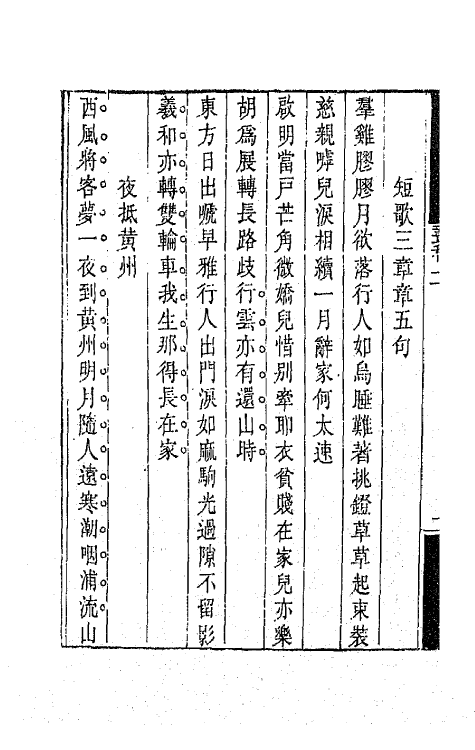 短歌三章章五句
羣雞膠膠月欲落行人如烏睡難著挑鐙草草起束裝
慈親嘑兒淚相續一月辭家何太速
啟明當戶芒角微嬌兒惜別牽耶衣貧賤在家兒亦樂
胡爲展轉長路歧行雲亦有還山時
東方日出嗁早雅行人出門淚如麻駒光過隙不留影
羲和亦轉雙輪車我生那得長在家
夜抵黄州
西風將客夢一夜到黄州明月隨人遠寒潮咽浦流山